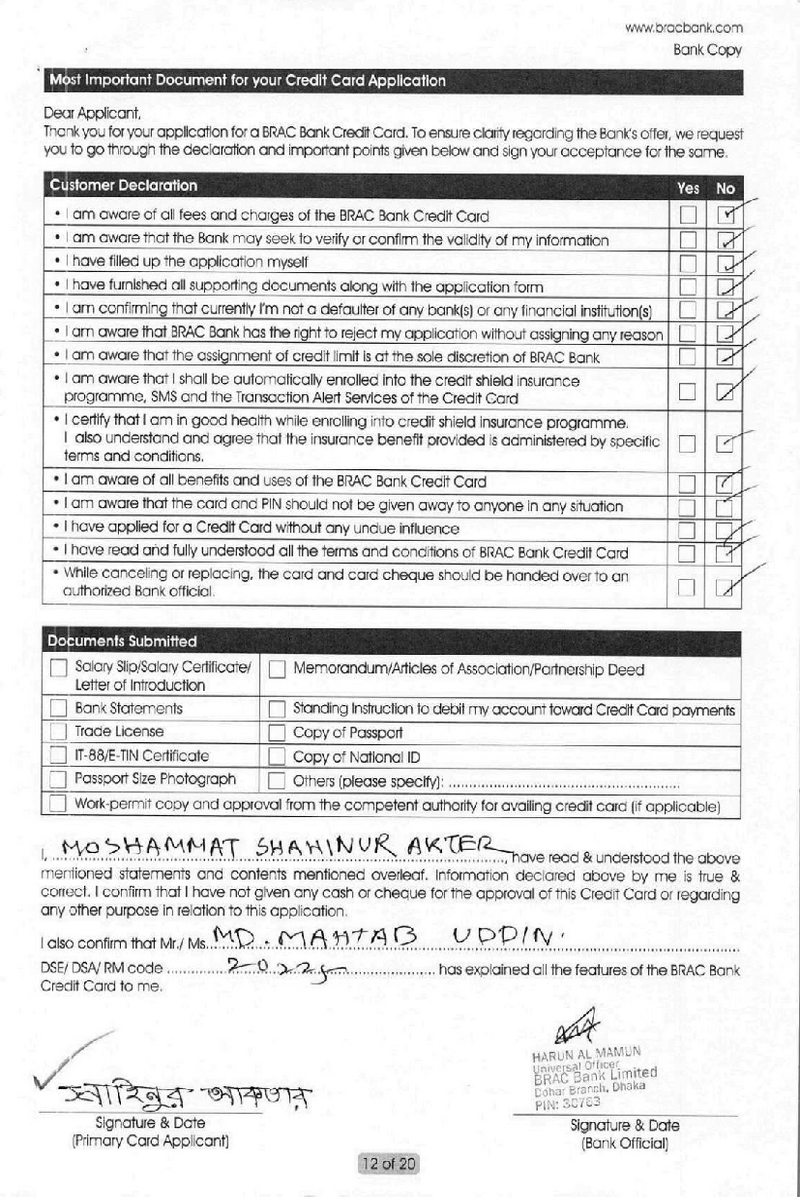 www.bracbank.com
Bank Copy
Most Important Document for your Credit Card Application
Dear Applicant,
Thank you for your application for a BRAC Bank Credit Card. To ensure clarity regarding the Bank's offer, we request
you to go through the declaration and important points given below and sign your acceptance for the same.
Customer Declaration Yes No
• I am aware of all fees and charges of the BRAC Bank Credit Card
• I am aware that the Bank may seek to verify or confirm the validity of my information
• I have filled up the application myself
• I have furnished all supporting documents along with the application form
• I am confirming that currently I'm not a defaulter of any bank(s) or any financial institution(s)
• I am aware that BRAC Bank has the right to reject my application without assigning any reason
• I am aware that the assignment of credit limit is at the sole discretion of BRAC Bank
• I am aware that I shall be automatically enrolled into the credit shield insurance
programme, SMS and the Transaction Alert Services of the Credit Card
• I certify that I am in good health while enrolling into credit shield insurance programme.
I also understand and agree that the insurance benefit provided is administered by specific
terms and conditions.
• I am aware of all benefits and uses of the BRAC Bank Credit Card
• I am aware that the card and PIN should not be given away to anyone in any situation
• I have applied for a Credit Card without any undue influence
• I have read and fully understood all the terms and conditions of BRAC Bank Credit Card
• While canceling or replacing, the card and card cheque should be handed over to an
authorized Bank official.
Documents Submitted
Salary Slip/Salary Certificate/ Memorandum/Articles of Association/Partnership Deed
Letter of Introduction
Bank Statements Standing Instruction to debit my account toward Credit Card payments
Trade License Copy of Passport
IT-88/E-TIN Certificate Copy of National ID
Passport Size Photograph Others (please specify):
Work-permit copy and approval from the competent authority for availing credit card (if applicable)
I, MOSHAMMAT SHAHINUR AKTER, have read & understood the above
mentioned statements and contents mentioned overleaf. Information declared above by me is true &
correct. I confirm that I have not given any cash or cheque for the approval of this Credit Card or regarding
any other purpose in relation to this application.
I also confirm that Mr./ Ms. MD. MAHTAB UDDIN
DSE/ DSA/ RM code has explained all the features of the BRAC Bank
Credit Card to me.
HARUN AL MAMUN
Universal Officer
BRAC Bank Limited
Dohar Branch, Dhaka
PIN: 30763
সাহিনুর আকতার
Signature & Date
(Primary Card Applicant)
Signature & Date
(Bank Official)
12 of 20